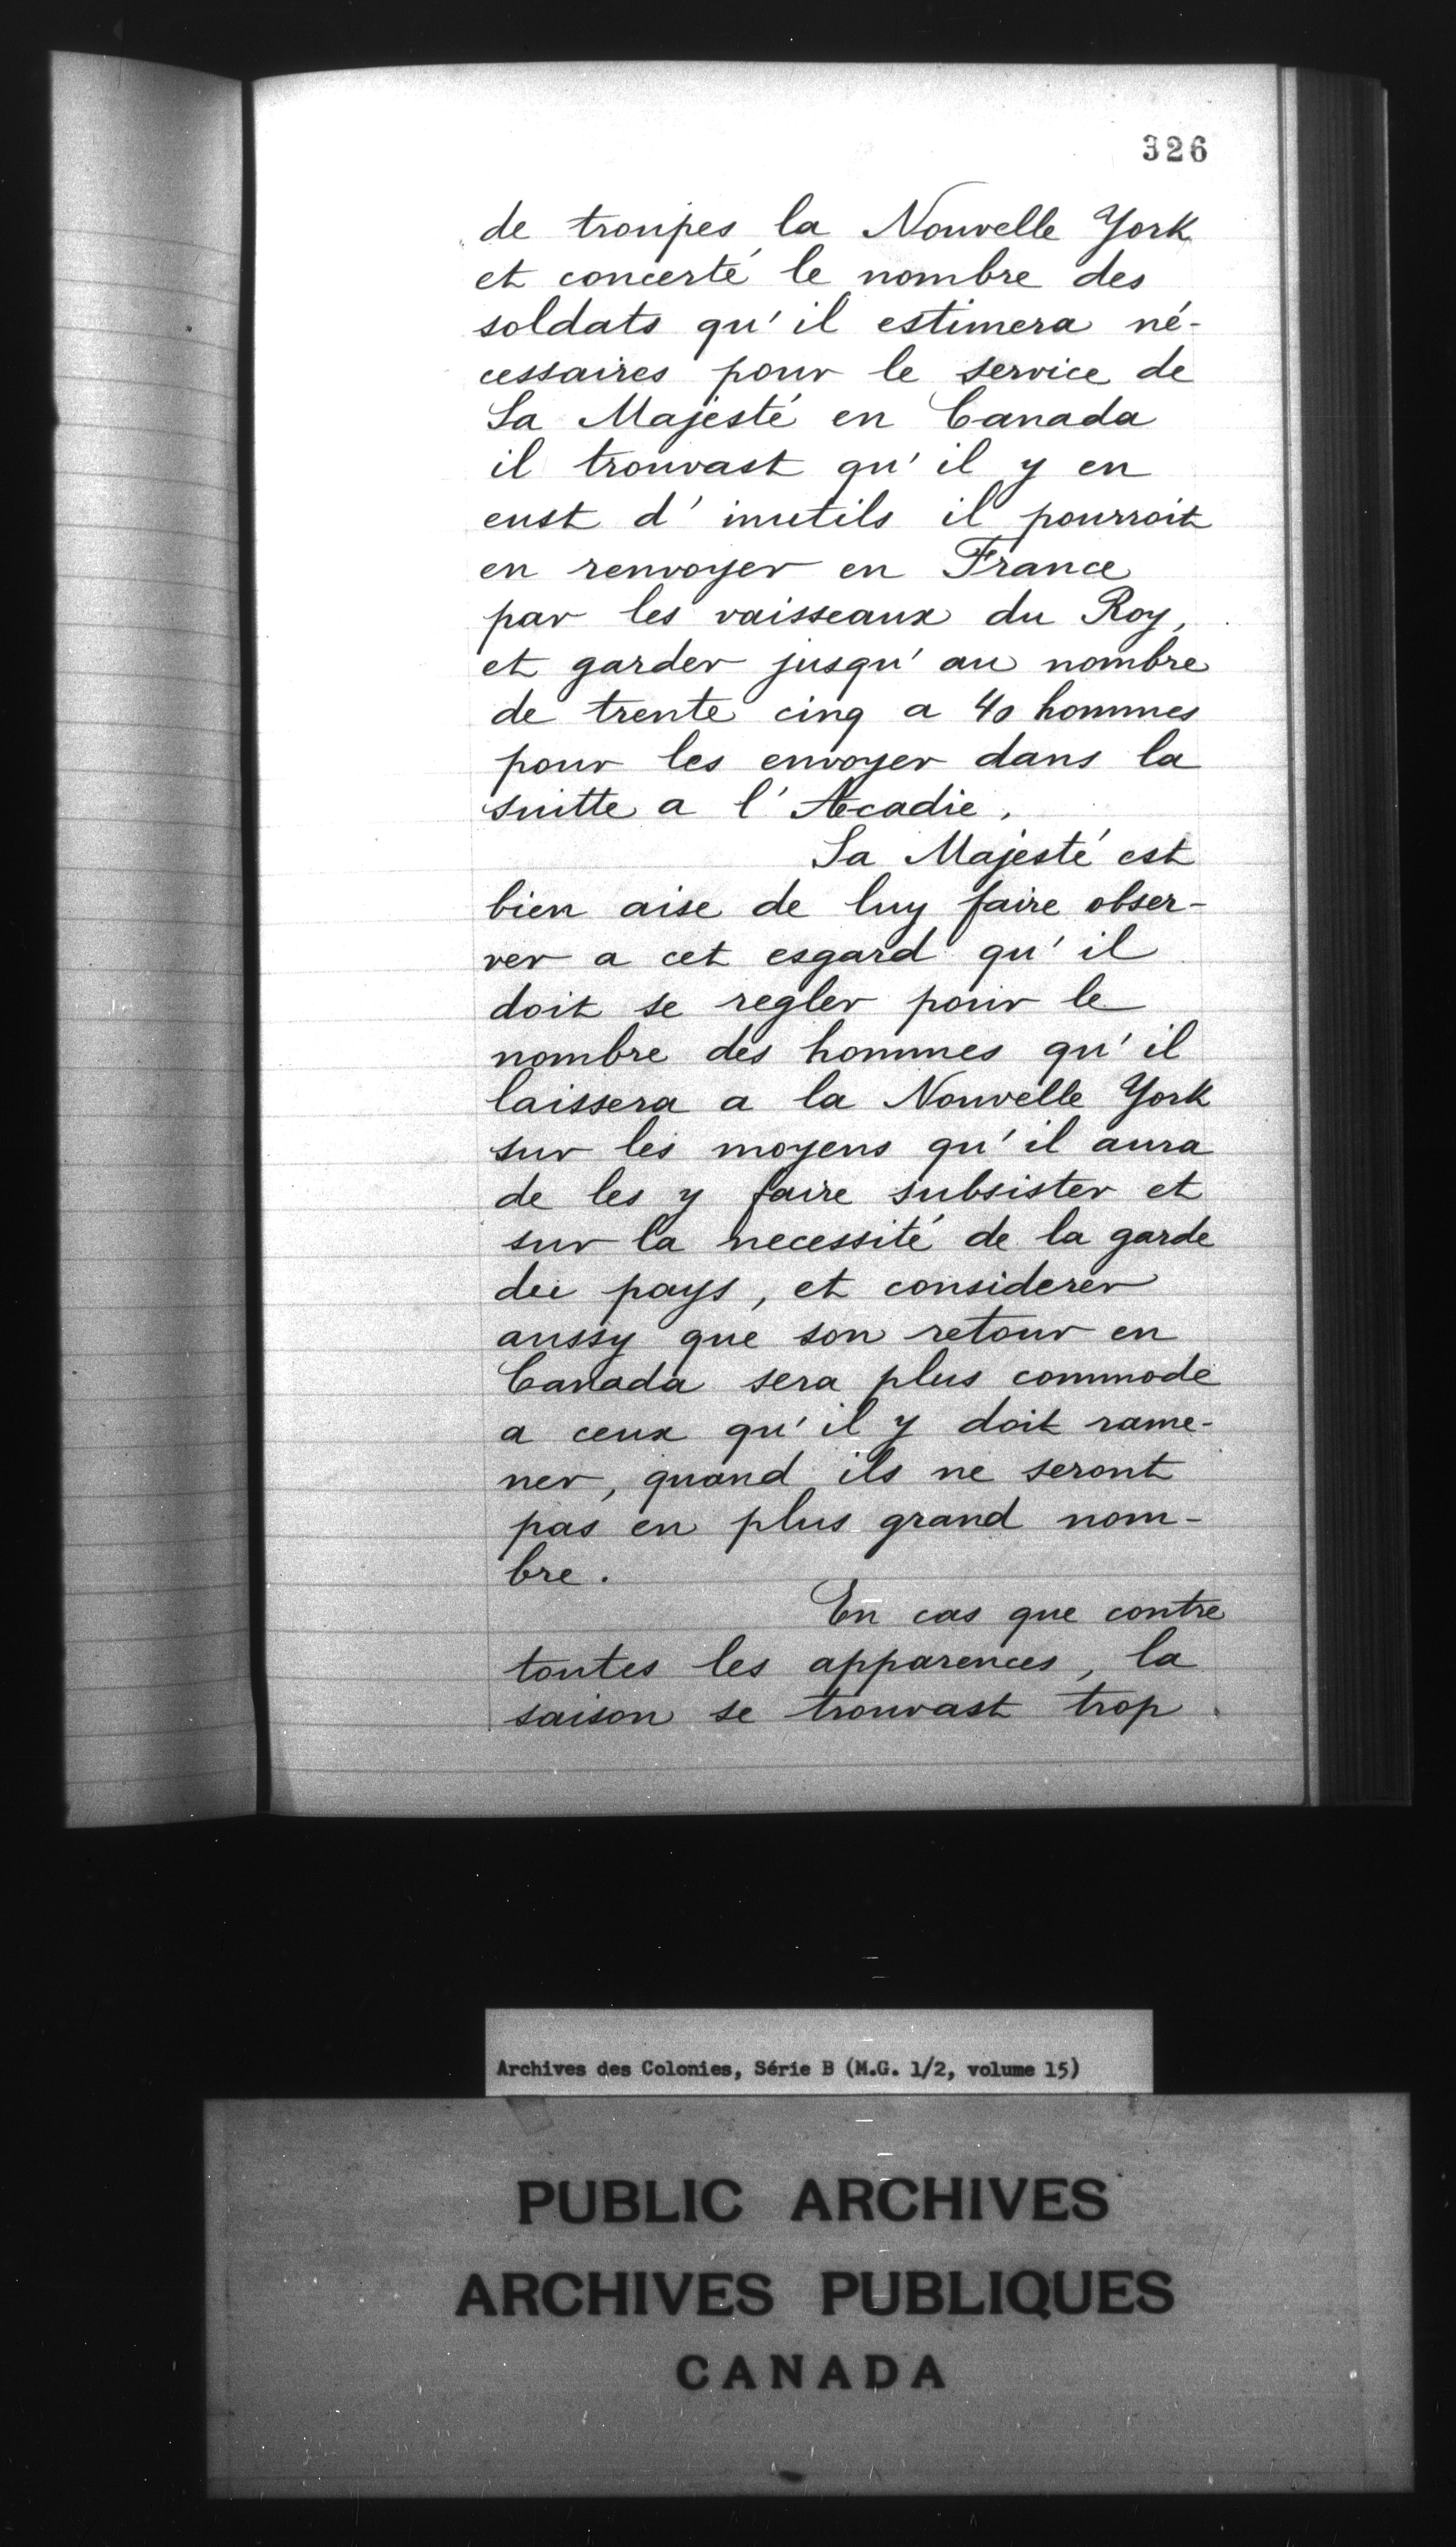 326
de troupes la Nouvelle York
et concerté le nombre des
soldats qu'il estimera né-
cessaires pour le service de
Sa Majesté en Canada
il trouvast qu'il y en
eust d'inutils il pourroit
en renvoyer en France
par les vaisseaux du Roy,
et garder jusqu'au nombre
de trente cinq a 40 hommes
pour les envoyer dans la
suitte a l'Accadie.
Sa Majesté est
bien aise de luy faire obser-
ver a cet esgard qu'il
doit se regler pour le
nombre des hommes qu'il
laissera a la Nouvelle York
sur les moyens qu'il aura
de les y faire subsister et
sur la necessité de la garde
du pays, et considerer
aussy que son retour en
Canada sera plus commode
a ceux qu'il y doit rame-
ner, quand ils ne seront
pas en plus grand nom-
bre.
En cas que contre
toutes les apparences, la
saison se trouvast trop
Archives des Colonies, Série B (M.G. 1/2, volume 15)
PUBLIC ARCHIVES
ARCHIVES PUBLIQUES
CANADA